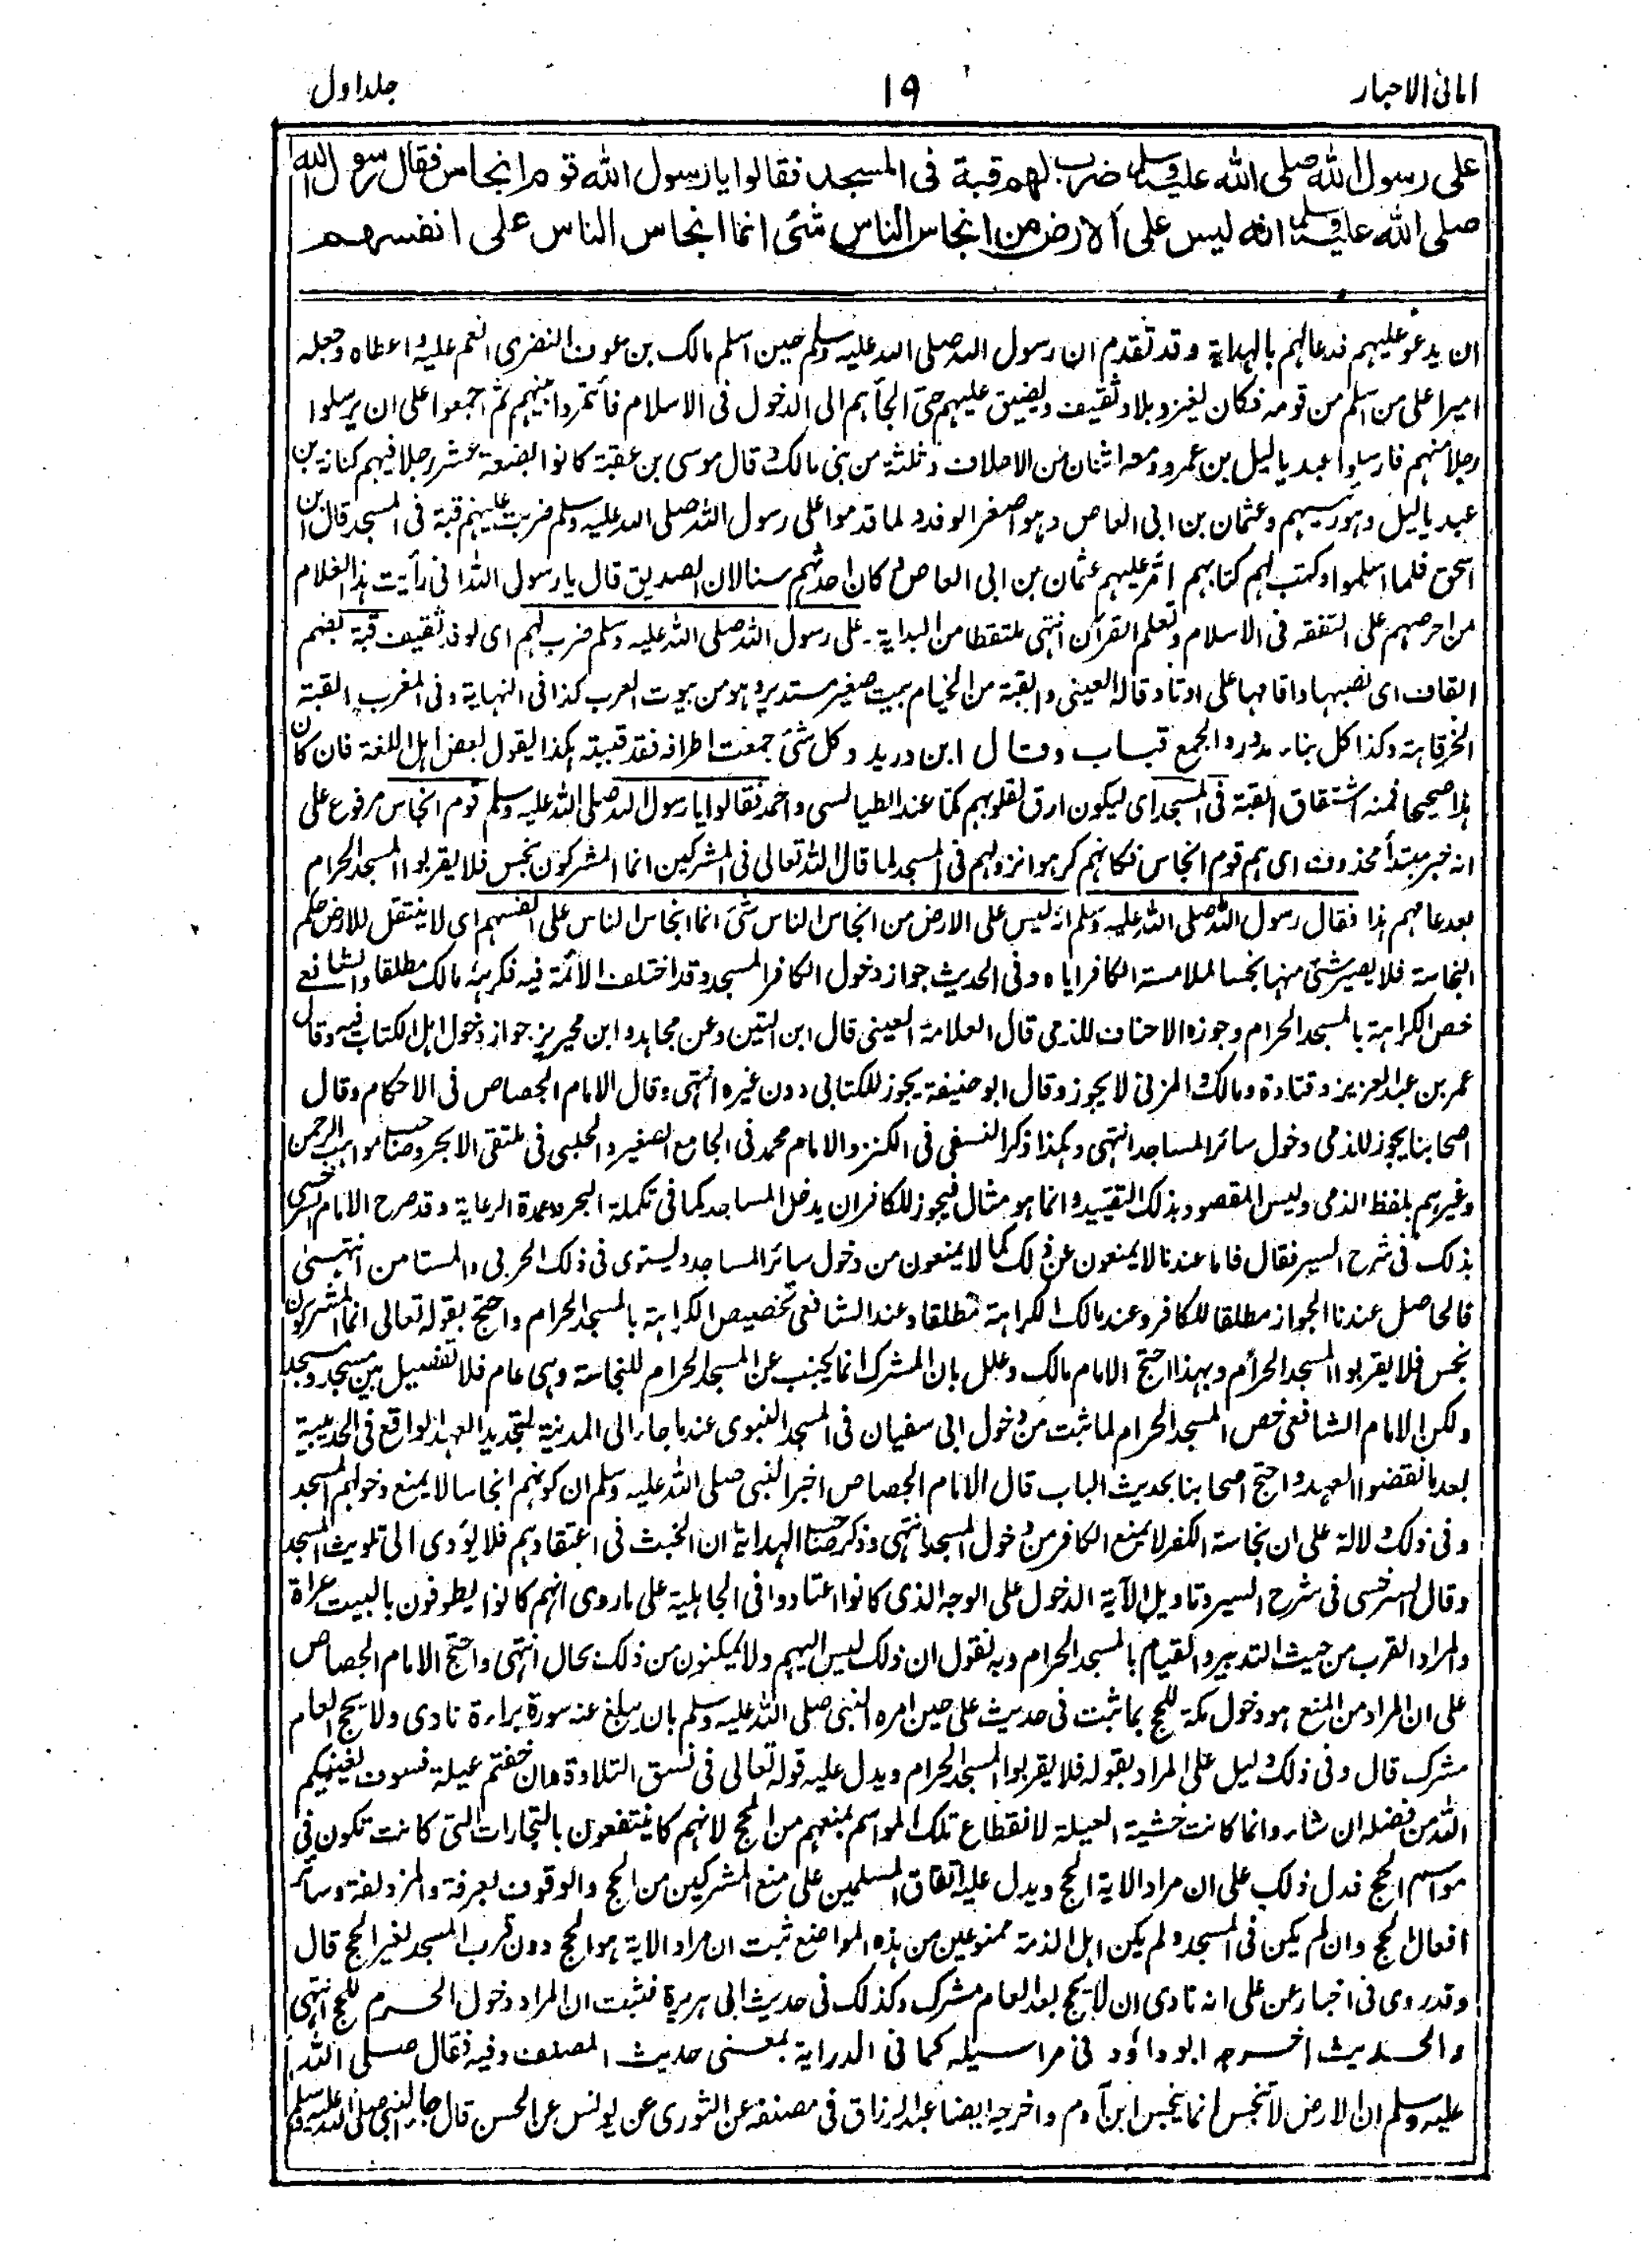 امانى الاحبار ١٩ جلد اول
على رسول الله صلى الله عليه وسلم ضرب لهم قبة فى المسجد فقالوا يا رسول الله قوم انجاس فقال رسول الله
صلى الله عليه وسلم انه ليس على الارض من انجاس الناس شئ انما انجاس الناس على انفسهم
ان يدعو عليهم فدعا لهم بالهداية وقد تقدم ان رسول الله صلى الله عليه وسلم حين اسلم مالك بن عوف النضرى انعم عليه واعطاه وجعله
اميرا على من اسلم من قومه فكان يغزو بلاد ثقيف ويضيق عليهم حتى الجأهم الى الدخول فى الاسلام فأتمروا بينهم ثم اجمعوا على ان يرسلوا
رجلا منهم فارسلوا عبد ياليل بن عمرو ومعه اثنان من الاحلاف وثلثة من بنى مالك قال موسى بن عقبة كانوا بضعة عشر رجلا فيهم كنانة بن
عبد ياليل وهو رئيسهم وعثمان بن ابى العاص وهو اصغر الوفد ولما قدموا على رسول الله صلى الله عليه وسلم ضربت عليهم قبة فى المسجد قال ابن
اسحق فلما اسلموا وكتب لهم كتابهم امر عليهم عثمان بن ابى العاص وكان احدثهم سنا لان الصديق قال يا رسول الله انى رأيت هذا الغلام
من احرصهم على التفقه فى الاسلام وتعلم القرآن انتهى ملتقطا من البداية۔ على رسول الله صلى الله عليه وسلم ضرب لهم اى لوفد ثقيف قبة بضم
القاف اى نصبها واقامها على اوتاد قاله العينى والقبة من الخيام بيت صغير مستدير وهو من بيوت العرب كذا فى النهاية وفى المغرب القبة
الخرقاهة وكذا كل بناء مدور والجمع قباب وقال ابن دريد وكل شئ جمعت اطرافه فقد قببته هكذا يقول بعض اهل اللغة فان كان
هذا صحيحا فمنه اشتقاق القبة فى المسجد اى ليكون ارق لقلوبهم كما عند الطيالسى واحمد فقالوا يا رسول الله صلى الله عليه وسلم قوم انجاس مرفوع على
انه خبر مبتدأ محذوف اى هم قوم انجاس فكانهم كرهوا نزولهم فى المسجد لما قال الله تعالى فى المشركين انما المشركون نجس فلا يقربوا المسجد الحرام
بعد عامهم هذا فقال رسول الله صلى الله عليه وسلم انه ليس على الارض من انجاس الناس شئ انما انجاس الناس على انفسهم اى لا ينتقل للارض حكم
النجاسة فلا يصير شئ منها نجسا لملامسة الكافر اياه وفى الحديث جواز دخول الكافر المسجد وقد اختلف الائمة فيه فكرهه مالك مطلقا والشافعى
خص الكراهة بالمسجد الحرام وجوزه الاحناف للذمى قال العلامة العينى قال ابن التين وعن مجاهد وابن محيريز جواز دخول اهل الكتاب فيه وقال
عمر بن عبد العزيز وقتادة ومالك والمزنى لا يجوز وقال ابو حنيفة يجوز للكتابى دون غيره انتهى وقال الامام الجصاص فى الاحكام وقال
اصحابنا يجوز للذمى دخول سائر المساجد انتهى وهكذا ذكر النسفى فى الكنز والامام محمد فى الجامع الصغير والحلبى فى ملتقى الابحر وصاحب مواهب الرحمن
وغيرهم بلفظ الذمى وليس المقصود بذلك التقييد وانما هو مثال فيجوز للكافر ان يدخل المساجد كما فى تكملة البحر وعمدة الرعاية وقد صرح الامام السرخسى
بذلك فى شرح السير فقال فاما عندنا لا يمنعون عن ذلك كما لا يمنعون من دخول سائر المساجد ويستوى فى ذلك الحربى والمستامن انتهى
فالحاصل عندنا الجواز مطلقا للكافر وعند مالك الكراهة مطلقا وعند الشافعى تخصيص الكراهة بالمسجد الحرام واحتج بقوله تعالى انما المشركون
نجس فلا يقربوا المسجد الحرام وبهذا احتج الامام مالك وعلل بان المشرك انما يجنب عن المسجد الحرام للنجاسة وهى عام فلا تفصيل بين مسجد ومسجد
ولكن الامام الشافعى خص المسجد الحرام لما ثبت من دخول ابى سفيان فى المسجد النبوى عندما جاء الى المدينة لتجديد العهد الواقع فى الحديبية
بعد ما نقضوا العهد واحتج اصحابنا بحديث الباب قال الامام الجصاص اخبر النبى صلى الله عليه وسلم ان كونهم انجاسا لا يمنع دخولهم المسجد
وفى ذلك دلالة على ان نجاسة الكفر لا يمنع الكافر من دخول المسجد انتهى وذكر صاحب الهداية ان الخبث فى اعتقادهم فلا يؤدى الى تلويث المسجد
وقال السرخسى فى شرح السير وتاويل الآية الدخول على الوجه الذى كانوا اعتادوا فى الجاهلية على ماروى انهم كانوا يطوفون بالبيت عراة
والمراد القرب من حيث التدبير والقيام بالمسجد الحرام وبه نقول ان ذلك ليس اليهم ولا يمكنون من ذلك بحال انتهى واحتج الامام الجصاص
على ان المراد من المنع هو دخول مكة للحج بما ثبت فى حديث على حين امره النبى صلى الله عليه وسلم بان يبلغ عنه سورة براءة نادى ولا يحج العام
مشرك قال وفى ذلك دليل على المراد بقوله فلا يقربوا المسجد الحرام ويدل عليه قوله تعالى فى نسق التلاوة وان خفتم عيلة فسوف يغنيكم
الله من فضله ان شاء وانما كانت خشية العيلة لانقطاع تلك المواسم بمنعهم من الحج لانهم كانوا ينتفعون بالتجارات التى كانت تكون فى
مواسم الحج فدل ذلك على ان مراد الاية الحج ويدل عليه اتفاق المسلمين على منع المشركين من الحج والوقوف بعرفة والمزدلفة وسائر
افعال الحج وان لم يكن فى المسجد ولم يكن اهل الذمة ممنوعين من هذه المواضع ثبت ان مراد الاية هو الحج دون قرب المسجد لغير الحج قال
وقد روى فى اخبار عن على انه نادى ان لا يحج بعد العام مشرك وكذلك فى حديث ابى هريرة فثبت ان المراد دخول الحرم للحج انتهى
والحديث اخرجه ابو داؤد فى مراسيله كما فى الدراية بمعنى حديث المصنف وفيه فقال صلى الله
عليه وسلم ان الارض لا تنجس انما ينجس ابن آدم واخرجه ايضا عبد الرزاق فى مصنفه عن الثورى عن يونس عن الحسن قال جاء النبى صلى الله عليه وسلم